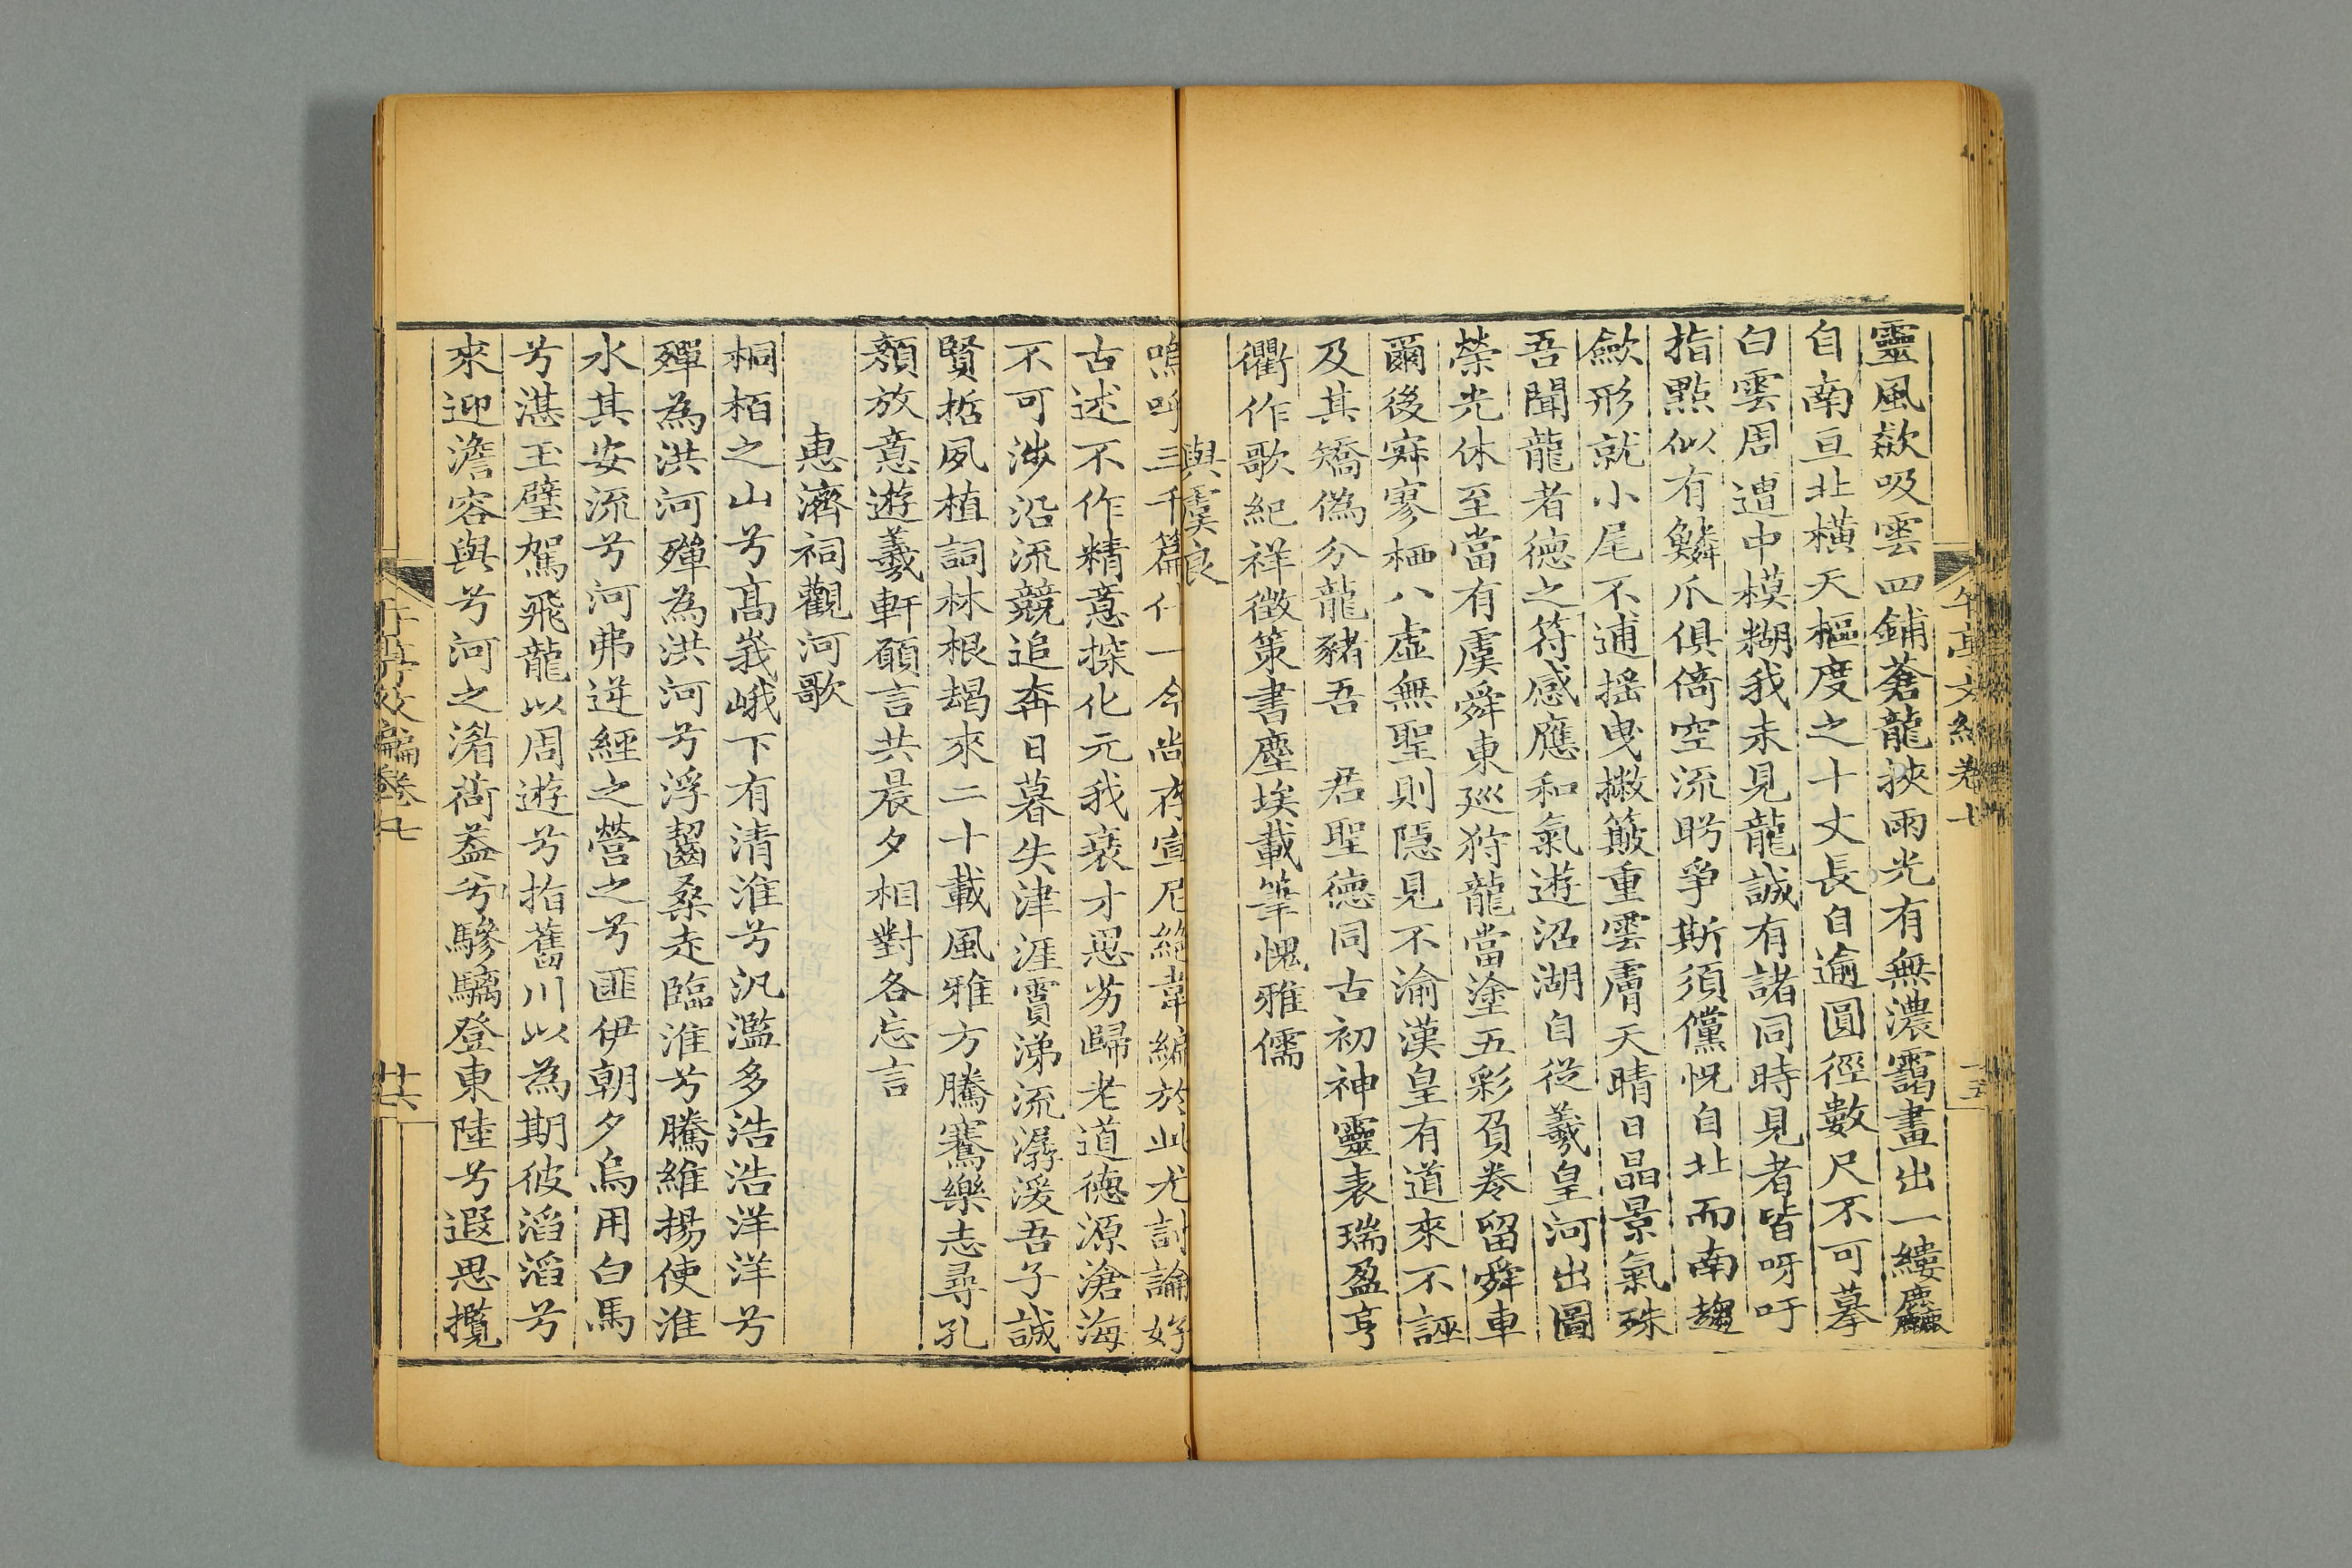 午亭文編卷七
十五
靈風歘吸雲四鋪蒼龍挾雨光有無濃靄畫出一縷麤
自南亘北橫天樞度之十丈長自逾圓徑數尺不可摹
白雲周遭中模糊我未見龍誠有諸同時見者皆呀吁
指點似有鱗爪俱倚空流眄爭斯須儻怳自北而南趨
歛形就小尾不逋搖曳撇簸重雲膚天晴日晶景氣殊
吾聞龍者德之符感應和氣遊沼湖自從羲皇河出圖
榮光休至當有虞舜東巡狩龍當塗五彩負卷留舜車
爾後寂寥栖八虛無聖則隱見不渝漢皇有道來不誣
及其矯僞分龍豬吾 君聖德同古初神靈表瑞盈亨
衢作歌紀祥徵策書塵埃載筆愧雅儒
與虞良
嗚呼三千篇什一今尚存宣尼絕韋編於此尤討論好
古述不作精意探化元我衰才思劣歸老道德源滄海
不可涉沿流競追奔日暮失津涯霣涕流潺湲吾子誠
賢哲夙植詞林根朅來二十載風雅方騰騫樂志尋孔
顏放意遊羲軒願言共晨夕相對各忘言
惠濟祠觀河歌
桐栢之山兮高峩峨下有清淮兮汎濫多浩浩洋洋兮
殫為洪河殫為洪河兮浮齧桑走臨淮兮騰維揚使淮
水其安流兮河弗逆經之營之兮匪伊朝夕烏用白馬
兮湛玉璧駕飛龍以周遊兮指舊川以為期彼滔滔兮
來迎澹容與兮河之渚荷蓋兮驂驪登東陸兮遐思攬
午亭文編卷七
廿六